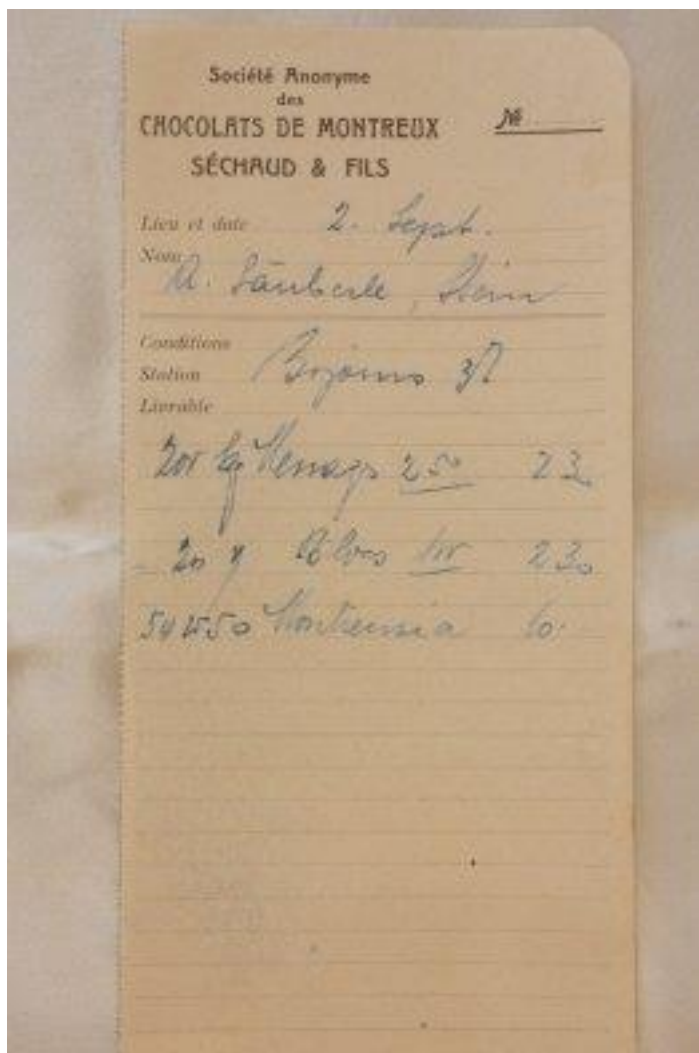 Société Anonyme
des
CHOCOLATS DE MONTREUX
SÉCHAUD & FILS
№
Lieu et date 2. Sept.
Nom A. Säuberle, Stein
Conditions
Station
Livrable
Menage 250 23
20 100 230
50 Montreusia